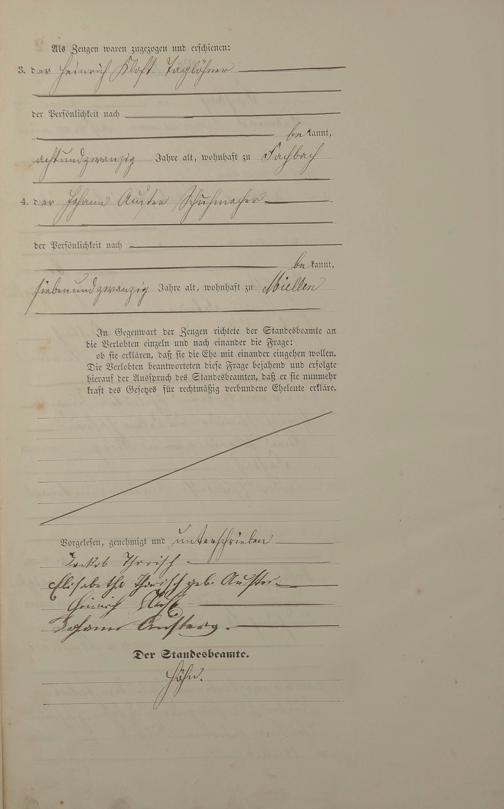 Als Zeugen waren zugezogen und erschienen:
3. der Heinrich Kloft Taglöhner
der Persönlichkeit nach
bekannt,
achtundzwanzig Jahre alt, wohnhaft zu Fachbach
4. der Johann Auster Schuhmacher
der Persönlichkeit nach
bekannt,
siebenundzwanzig Jahre alt, wohnhaft zu Miellen
In Gegenwart der Zeugen richtete der Standesbeamte an
die Verlobten einzeln und nach einander die Frage:
ob sie erklären, daß sie die Ehe mit einander eingehen wollen.
Die Verlobten beantworteten diese Frage bejahend und erfolgte
hierauf der Ausspruch des Standesbeamten, daß er sie nunmehr
kraft des Gesetzes für rechtmäßig verbundene Eheleute erkläre.
Vorgelesen, genehmigt und unterschrieben
Jakob
Elisabethe geb. Auster
Heinrich Kloft
Johann
Der Standesbeamte.
Höhn.